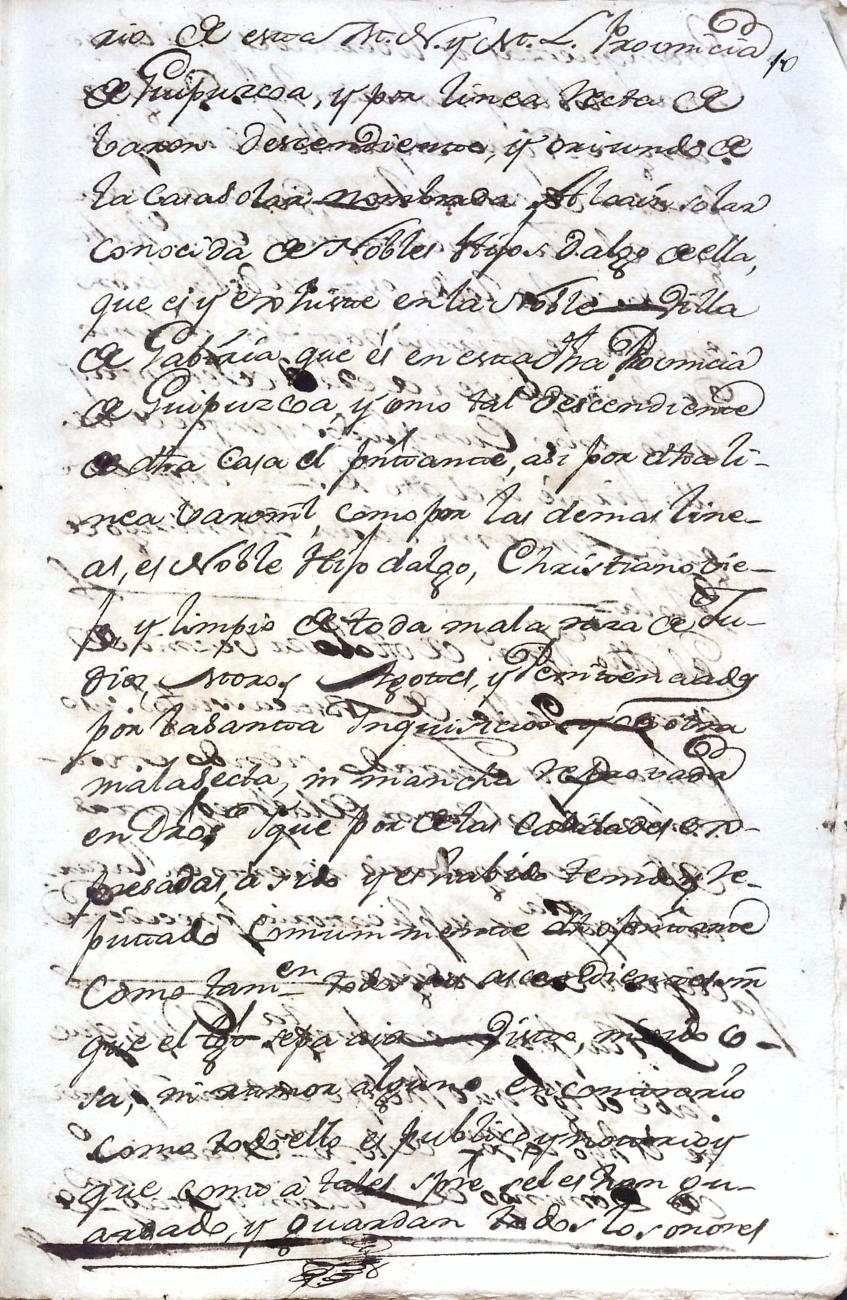 10
rio de esta M. N. y M. L. Provincia
de Guipuzcoa, y por linea recta de
baron descendiente, y oriundo de
la casa solar nombrada Alcain solar
conocida de Nobles Hijos Dalgo de ella,
que es y exhiste en la Noble Villa
de Gabiria que és en esta dha Provincia
de Guipuzcoa, y como tal descendiente
de dha Casa el pntante, asi por dha li-
nea baronil, como por las demas line-
as, es Noble Hijo dalgo, Christiano vie-
jo, y limpio de toda mala raza de Ju-
dios, Moros, Agotes, y Penitenciados
por la Santa Inquisicion y de otra
mala Secta, ni mancha reprovada
en Dro; y que por de las calidades ex-
presadas, à sido y es habido tenido y re-
puttado comunmente dho pntante
Como tamen todos sus ascendientes sin
que el tgo sepa aia visto, ni oido co-
sa, ni rumor alguno, en contrario
como todo ello es publico y notorio y
que como à tales spre se les han gu-
ardado, y guardan todos los onores